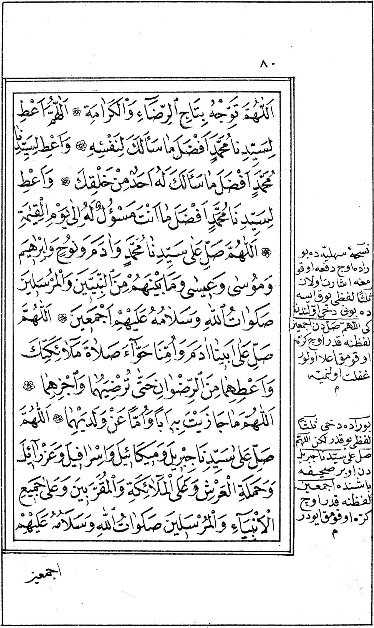 ٨٠
اَللّٰهُمَّ تَوِّجْهُ بِتَاجِ الرِّضَاءِ وَالْكَرَامَةِ ۞ اَللّٰهُمَّ اَعْطِ
لِسَيِّدِنَا مُحَمَّدٍ اَفْضَلَ مَا سَأَلَكَ لِنَفْسِهِ ۞ وَاَعْطِ لِسَيِّدِنَا
مُحَمَّدٍ اَفْضَلَ مَا سَأَلَكَ لَهُ اَحَدٌ مِنْ خَلْقِكَ ۞ وَاَعْطِ
لِسَيِّدِنَا مُحَمَّدٍ اَفْضَلَ مَا اَنْتَ مَسْؤُلٌ لَهُ اِلٰى يَوْمِ الْقِيٰمَةِ
۞ اَللّٰهُمَّ صَلِّ عَلٰى سَيِّدِنَا مُحَمَّدٍ وَاٰدَمَ وَنُوحٍ وَاِبْرٰهِيمَ
وَمُوسٰى وَعِيسٰى وَمَا بَيْنَهُمْ مِنَ النَّبِيِّينَ وَالْمُرْسَلِينَ
صَلَوَاتُ اللّٰهِ وَسَلَامُهُ عَلَيْهِمْ اَجْمَعِينَ ۞ اَللّٰهُمَّ
صَلِّ عَلٰى اَبِينَا اٰدَمَ وَاُمِّنَا حَوَّاءَ صَلَاةَ مَلٰئِكَتِكَ
وَاَعْطِهِمَا مِنَ الرِّضْوَانِ حَتّٰى تُرْضِيَهُمَا وَاجْزِهِمَا ۞
اَللّٰهُمَّ مَا جَازَيْتَ بِهِ اَبًا وَاُمًّا عَنْ وَلَدَيْهِمَا ۞ اَللّٰهُمَّ
صَلِّ عَلٰى سَيِّدِنَا جِبْرِيلَ وَمِيكَائِيلَ وَاِسْرَافِيلَ وَعَزْرَائِيلَ
وَحَمَلَةِ الْعَرْشِ وَعَلَى الْمَلٰئِكَةِ وَالْمُقَرَّبِينَ وَعَلٰى جَمِيعِ
الْاَنْبِيَاءِ وَالْمُرْسَلِينَ صَلَوَاتُ اللّٰهِ وَسَلَامُهُ عَلَيْهِمْ
اجمعين
نسخهٔ سهليه ده بو
راده اوچ دفعه اوقو
معه اشارت اولان
ثلثا لفظى بوقايسه
ده بونى دخى
كى اللهم صل دن اجمعين
لفظنه قدر اوچ كره
اوقومق اعلا اولور
غفلت اولنميه
م
بوراده دخى ثلثا
لفظى يوقدر لكن اللهم
صل على سيدنا جبريل
دن او بر صحيفه
باشنده اجمعين
لفظنه قدر اوچ
كره اوقومق ايودر
م